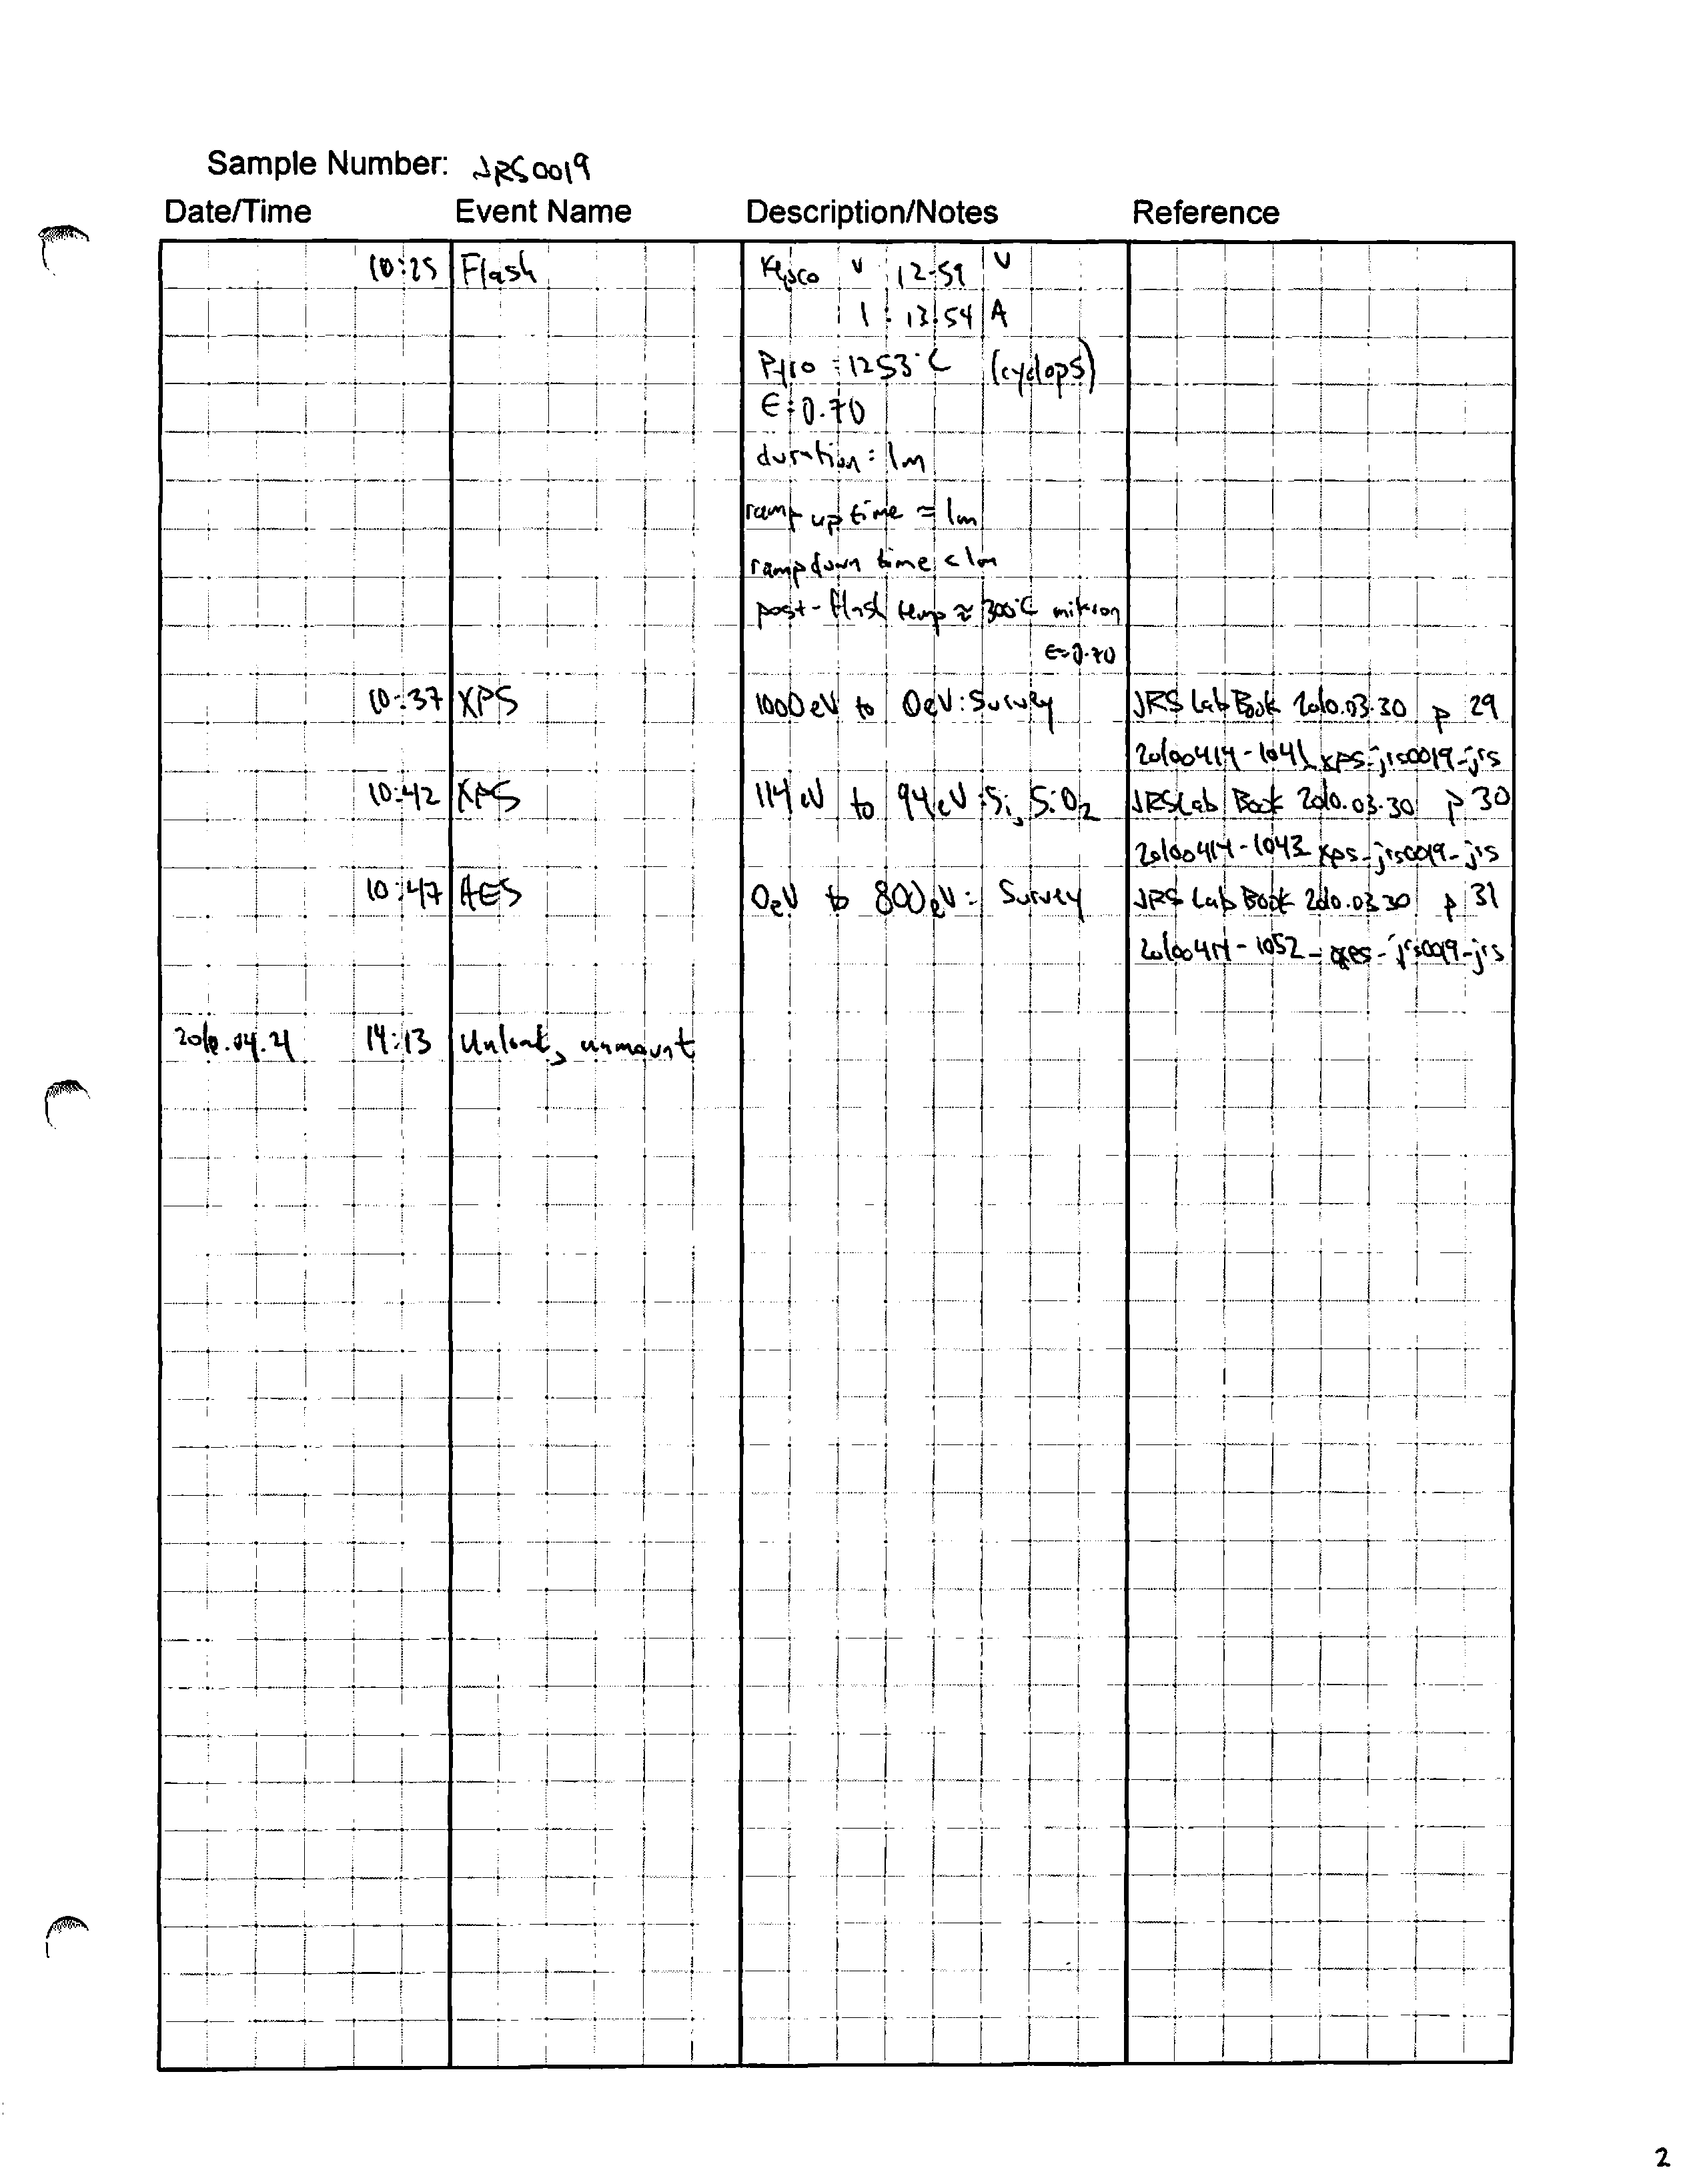 Sample Number: JRS0019
Date/Time Event Name Description/Notes Reference
10:25 Flash Kepco V : 12.59 V
I : 13.54 A
Pyro = 1253°C (cyclops)
ϵ = 0.70
duration = 1m
ramp up time ≈ 1m
ramp down time < 1m
post-flash temp ≈ 300°C mikron
ϵ=0.70
10:37 XPS 1000eV to 0eV: Survey JRS Lab Book 2010.03.30 p 29
20100414-1041_xps-jrs0019-jrs
10:42 XPS 114eV to 94eV: Si, SiO2 JRS Lab Book 2010.03.30 p 30
20100414-1043_xps-jrs0019-jrs
10:47 AES 0eV to 800eV: Survey JRS Lab Book 2010.03.30 p 31
20100414-1052_aes-jrs0019-jrs
2010.04.21 14:13 Unload, unmount
2